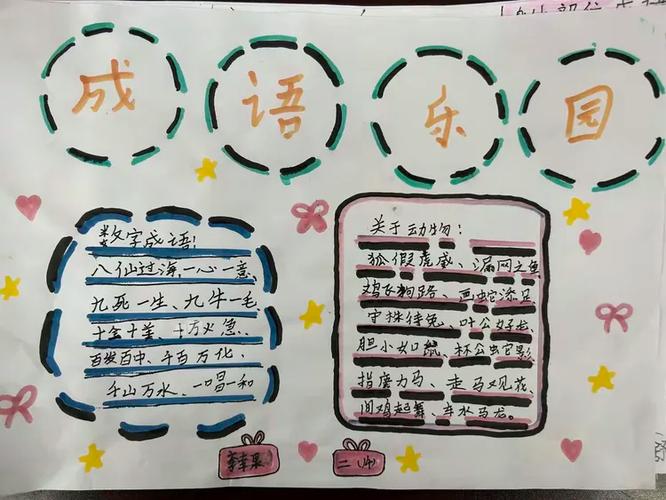 成语乐园
数字成语!
八仙过海、一心一意、
九死一生、九牛一毛
十全十美、十万火急、
百发百中、千百万化、
千山万水、一唱一和
关于动物:
狐假虎威、漏网之鱼
鸡飞狗路、画蛇添足
守株待兔、叶公好龙、
胆小如鼠、杯公虫它影、
指磨力马、走马观花
间鸡起舞、车水马龙。
二